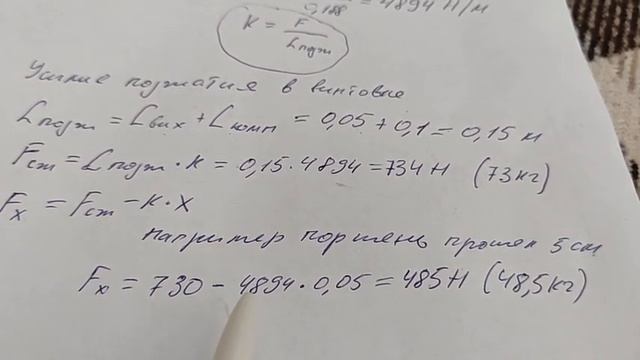 0,188 = 4894 Н/м
K = F / Lподж
Усилие поджатия в винтовке
Lподж = Lвых + Lкомп = 0,05 + 0,1 = 0,15 м
Fст = Lподж · K = 0,15 · 4894 = 734 Н (73 кг)
Fx = Fст - K · X
Например поршень прошел 5 см
Fx = 730 - 4894 · 0,05 = 485 Н (48,5 кг)